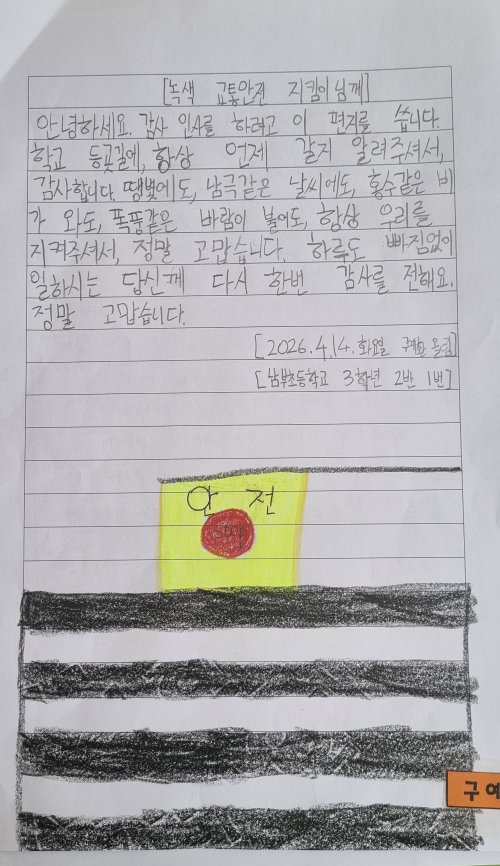 [녹색 교통안전 지킴이님께]
안녕하세요. 감사 인사를 하려고 이 편지를 씁니다.
학교 등굣길에, 항상 언제 갈지 알려주셔서,
감사합니다. 땡볕에도, 남극같은 날씨에도, 홍수같은 비
가 와도, 폭풍같은 바람이 불어도, 항상 우리를
지켜주셔서, 정말 고맙습니다. 하루도 빠짐없이
일하시는 당신께 다시 한번 감사를 전해요.
정말 고맙습니다.
[2026.4.14.화요일 올림]
[남부초등학교 3학년 2반 1번]
안전
stop
구 예